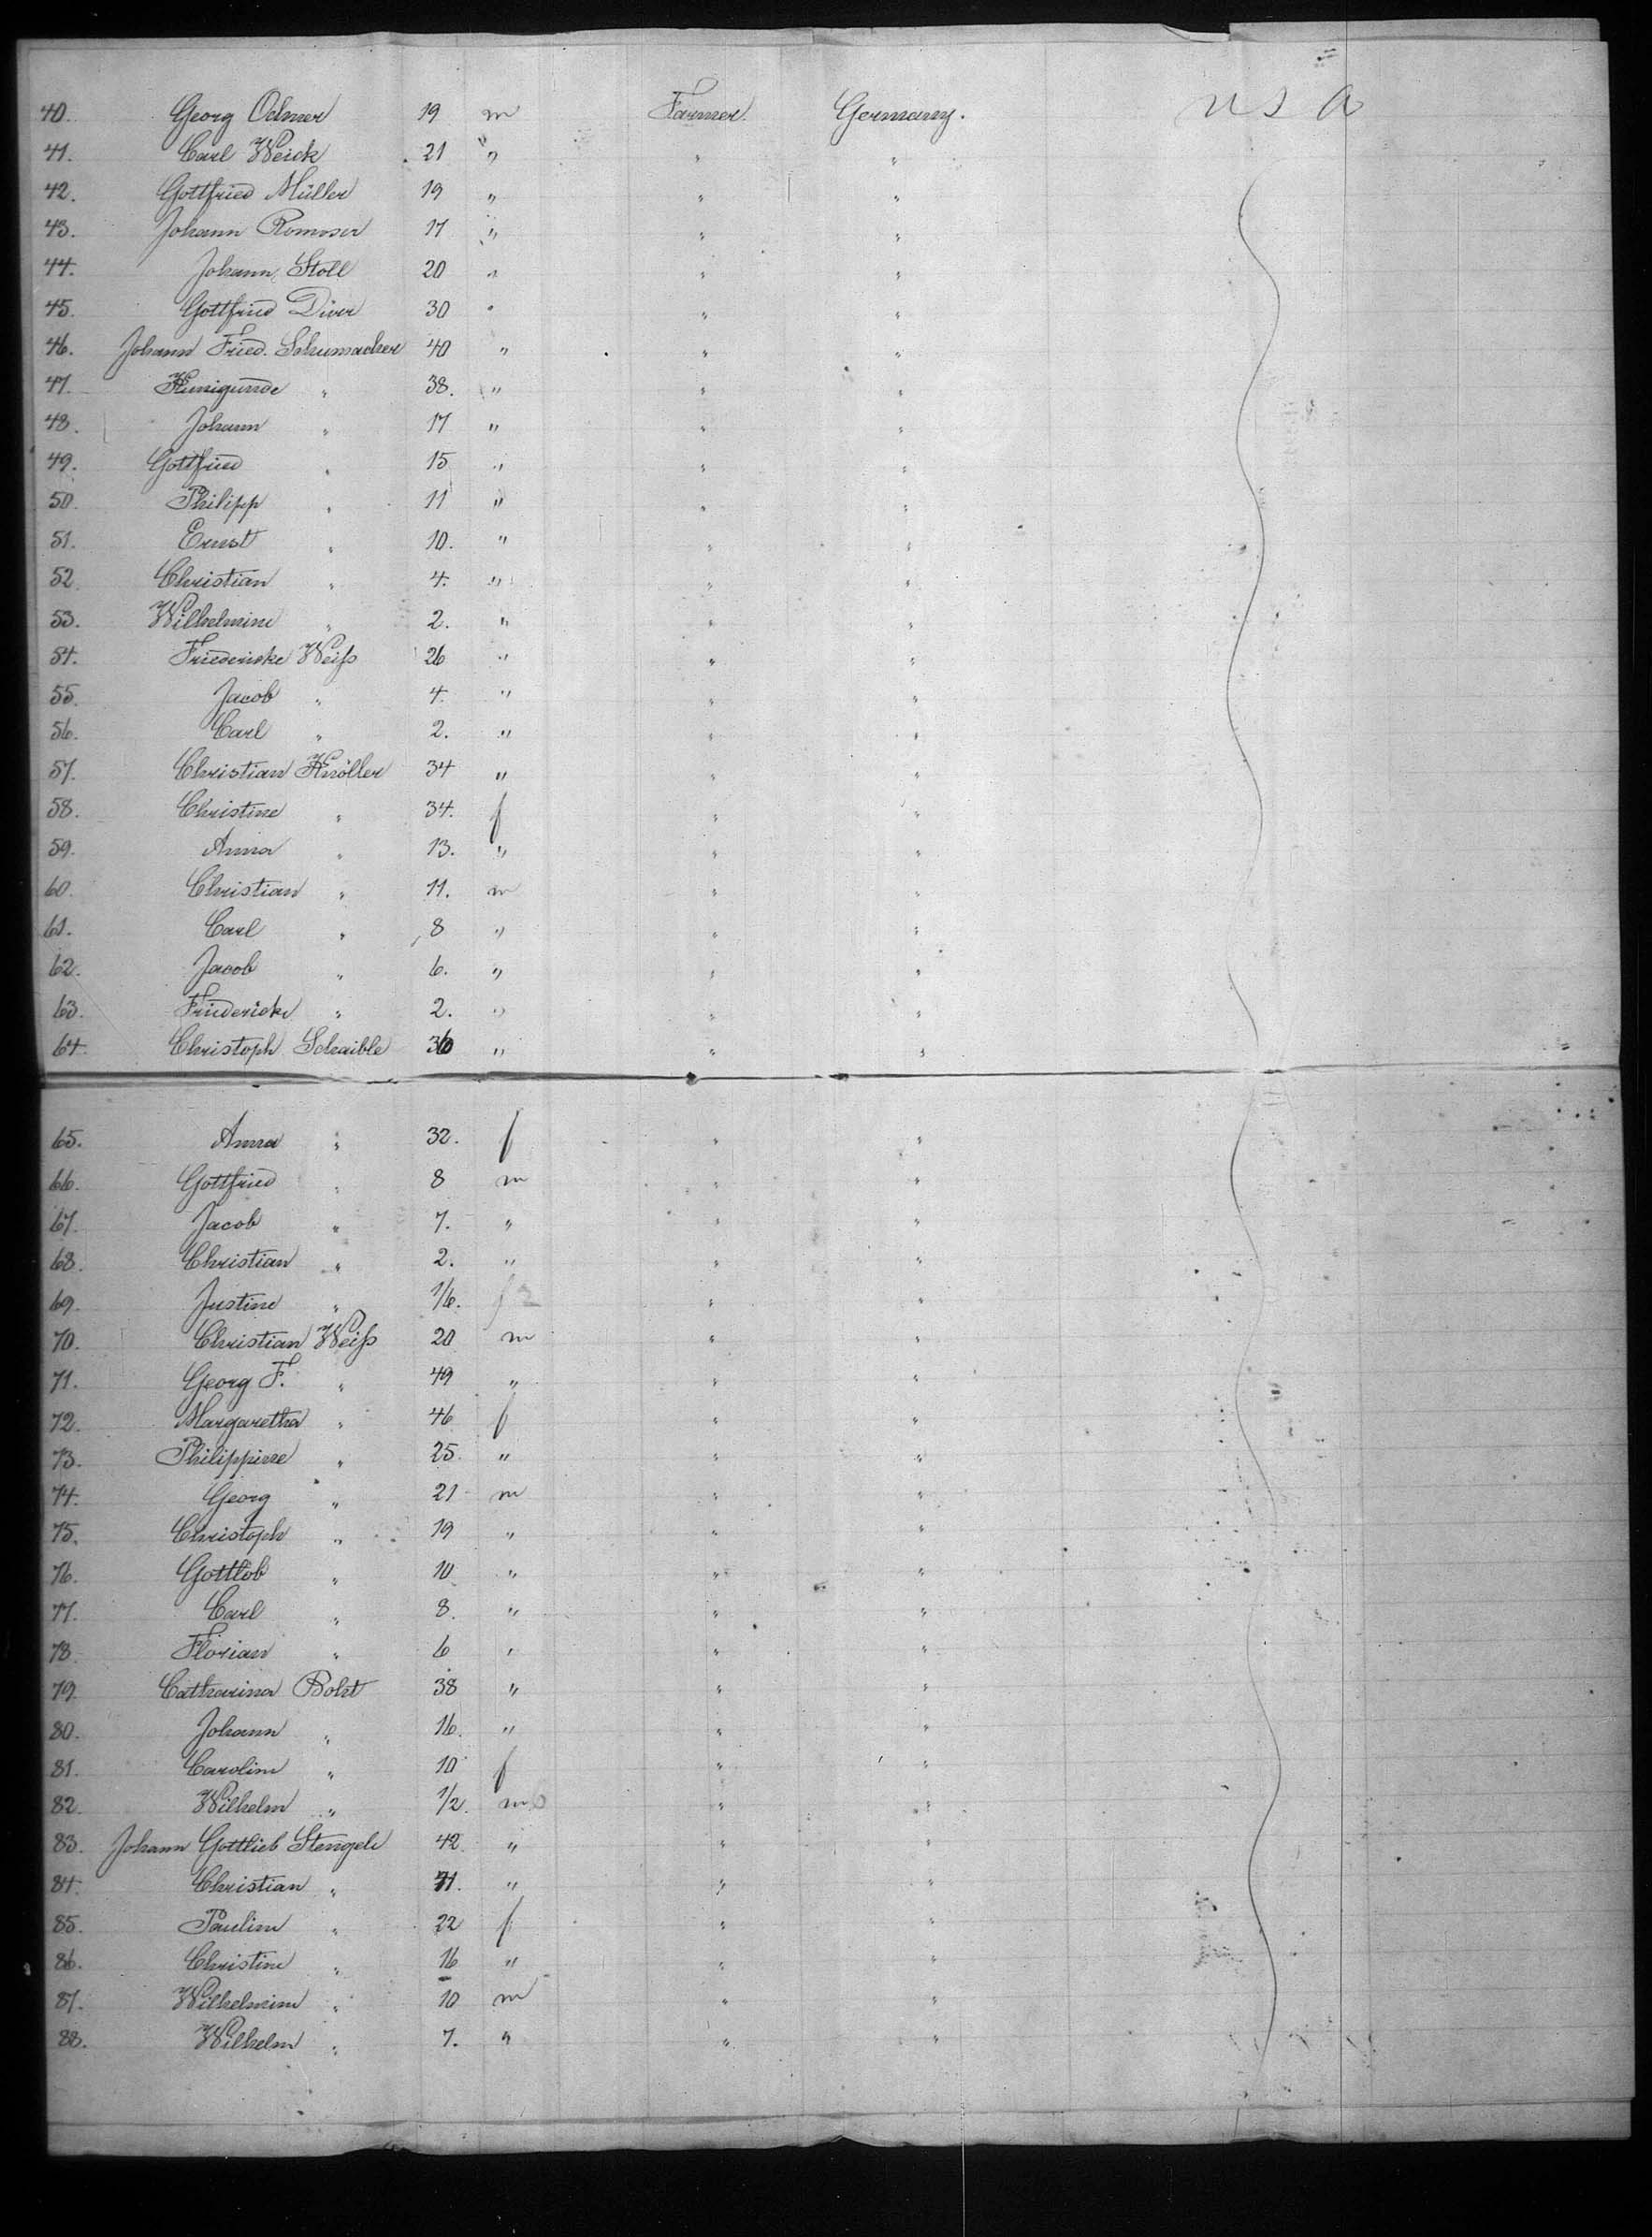 40. Georg Oelmer 19 m Farmer. Germany. U S A
41. Carl Weick 21 " " "
42. Gottfried Müller 19 " " "
43. Johann Romoser 17 " " "
44. Johann Stoll 20 " " "
45. Gottfried Diver 30 " " "
46. Johann Fried. Schumacher 40 " " "
47. Kunigunde " 38. " " "
48. Johann " 17 " " "
49. Gottfried " 15 " " "
50. Philipp " 11 " " "
51. Ernst " 10. " " "
52. Christian " 4. " " "
53. Wilhelmine " 2. " " "
54. Friedericke Weiß 26 " " "
55. Jacob " 4. " " "
56. Carl " 2. " " "
57. Christian Knöller 34 " " "
58. Christine " 34. f " "
59. Anna " 13. " " "
60. Christian " 11. m " "
61. Carl " 8 " " "
62. Jacob " 6. " " "
63. Friedericke " 2. " " "
64. Christoph Schaible 36 " " "
65. Anna " 32. f " "
66. Gottfried " 8 m " "
67. Jacob " 7. " " "
68. Christian " 2. " " "
69. Justine " 1/6. f " "
70. Christian Weiß 20 m " "
71. Georg F. " 49 " " "
72. Margaretha " 46 f " "
73. Philippine " 25. " " "
74. Georg " 21 m " "
75. Christoph " 19 " " "
76. Gottlob " 10 " " "
77. Carl " 8. " " "
78. Florian " 6 " " "
79. Catharina Boht 38 " " "
80. Johann " 16. " " "
81. Caroline " 10 f " "
82. Wilhelm " 1/2. m " "
83. Johann Gottlieb Stengele 42 " " "
84. Christian " " " "
85. Pauline " 22 f " "
86. Christine " 16 " " "
87. Wilhelmine " 10 m " "
88. Wilhelm " 7. " " "